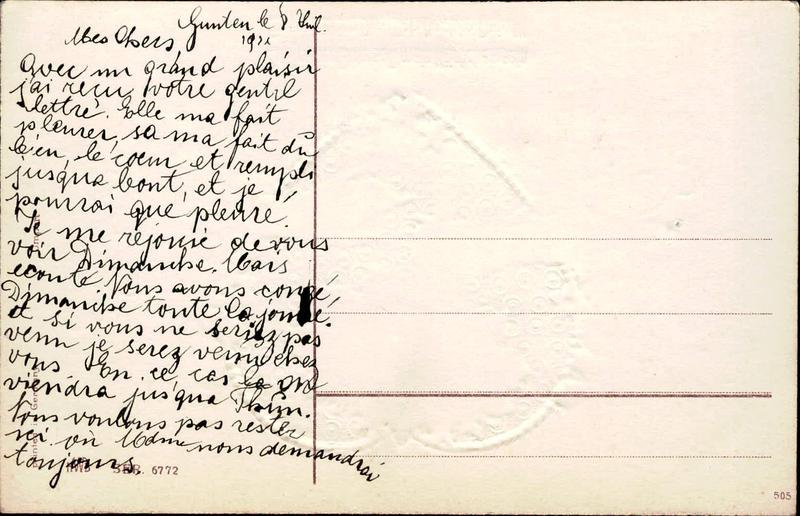 Gunten le 8 Juil.
Mes Chers, 1911
Avec un grand plaisir
j'ai reçu votre gentil
lettre. Elle ma fait
pleurer, sa ma fait du
bien, le coeur et rempli
jusqua bout, et je
pourrai que pleuré!
Je me réjouie de vous
voir Dimanche. Mais
ecoute. Nous avons congé,
Dimanche toute la journé.
et si vous ne seriez pas
venu je serez venu chez
vous. En ce cas on
viendra jusqua Thun.
Nous voulons pas rester
ici. où Mdme nous demandrai
toujours.
HWB SER. 6772
505